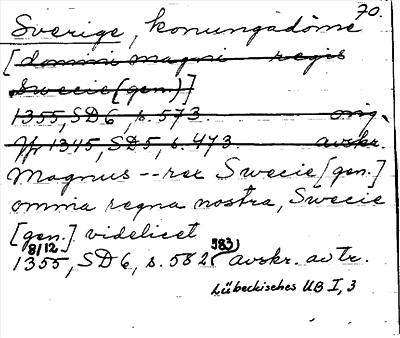 70.
Sverige, konungadöme
[domini magni regis
Swecie (gen.)]
1355, SD6, s. 573. orig.
Jfr 1345, SD5, s. 473. avskr.
Magnus -- rex Swecie [gen.]
omnia regna nostra, Swecie
[gen.] videlicet
8/12 583)
1355, SD6, s. 582 avskr. av tr.
Lübeckisches UB I, 3